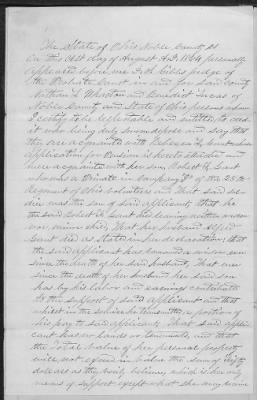 The State of Ohio Noble County SS
On this 21st day of August A.D. 1864 personally
appeared before me judge of
the Probate Court in and for said county
Nathan L. Wharton and Benedict Lucas of
Noble County and State of Ohio persons whom
I certify to be respectable and entitled to cred
it who being duly sworn depose and say that
they are acquainted with Rebecca whose
application for Pension is hereto attached and
were acquainted with her son Robert
who was a Private in Company of the 25th
Regiment of Ohio volunteers and that said sol
dier was the son of said applicant, that he
the said Robert leaving neither widow
nor minor child. That her husband
died as stated in her declaration, that
the said applicant has remained a widow ever
since the death of her said husband. That ever
since the death of her husband her said son
has by his labor and earnings contributed
to the support of said applicant and that
whilst in the service he transmitted a portion of
his pay to said applicant. That said appli
cant has no lands or tenements, and that
the total value of her personal property
will not exceed in value the sum of fifty
dollars as they verily believe, which is her only
means of support except what she may